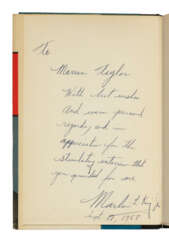 To
Marvin Taylor
With best wishes
And warm personal
regards, and
appreciation for the
stimulating interview that
you provided for me
Martin L. King Jr.
1958